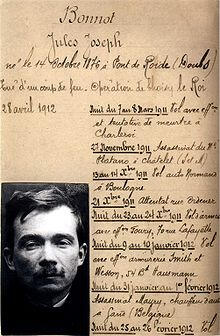 Bonnot
Jules Joseph
né le 14 Octobre 1876 à Pont de Roide (Doubs)
Tué d'un coup de feu. Opération de Choisy le Roi
28 avril 1912
Nuit du 7 au 8 Mars 1911 Vol avec effon
et tentative de meurtre à
Charleroi
27 Novembre 1911 Assassinat du Mr
Platano à Chatelet (S et M)
13 au 14 Xbre 1911 Vol auto Normand
à Boulogne
21 Xbre 1911 Attentat rue Ordener
Nuit du 23 au 24 Xbre 1911 Vol d'armes
avec effon Foury, 70 rue Lafayette
Nuit du 9 au 10 janvier 1912 Vol
avec effon armurerie Smith et
Wesson, 54 Bd Haussmann
Nuit du 31 janvier au 1er février 1912
Assassinat Mayry, chaufeur dans
Gand (Belgique)
Nuit du 25 au 26 février 1912